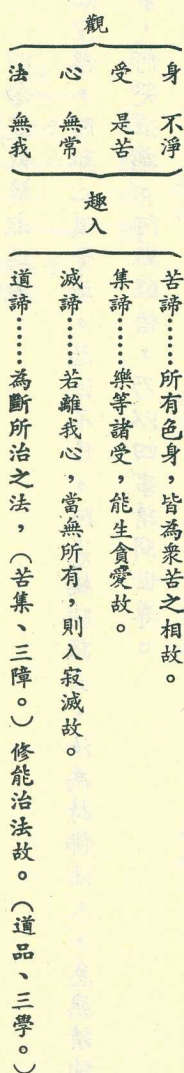 觀
身　不淨
受　是苦
心　無常
法　無我
趣入
苦諦……所有色身，皆為衆苦之相故。
集諦……樂等諸受，能生貪愛故。
滅諦……若離我心，當無所有，則入寂滅故。
道諦……為斷所治之法，（苦集、三障。）修能治法故。（道品、三學。）